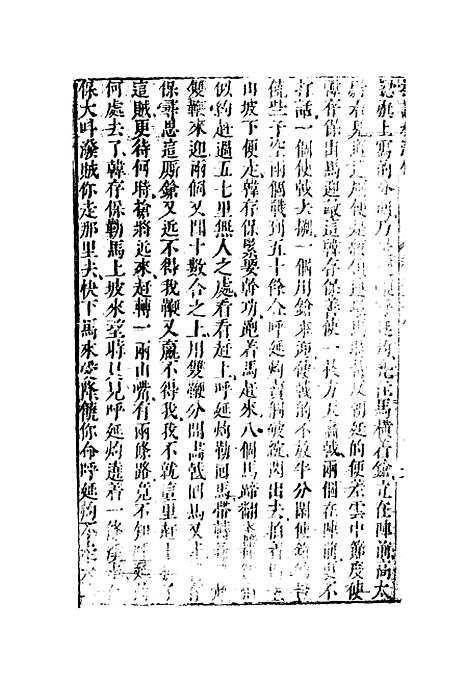 旗上寫的
出馬橫着鎗立在陣前向太
朝廷的便差雲中節度使
韓存保出馬迎敵這韓存保善使一枝方天畫戟兩個在陣前更不
打話一個使戟去搠一個用鎗來迎使戟的不放半分閑使鎗的
饒些子空兩個戰到五十餘合呼延灼賣個破綻閃出去拍着馬望
山坡下便走韓存保緊要幹功跑着馬赶來八個馬蹄翻
似約赶過五七里無人之處看看赶上呼延灼勒回馬帶轉
雙鞭來迎兩個又鬥十數合之上用雙鞭分開畫戟回馬又走韓存
保尋思這厮鎗又近不得我鞭又贏不得我我不就這里赶上
這賊更待何時搶將近來赶轉一個山嘴有兩條路竟不知呼延灼
何處去了韓存保勒馬上坡來望時只見呼延灼遶着一條溪走
保大叫潑賊你走那里去快下馬來受降饒你命呼延灼不走